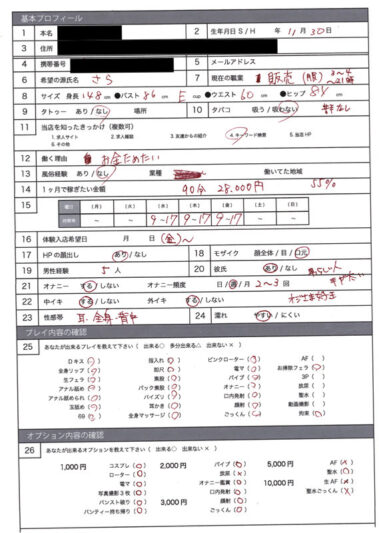 基本プロフィール
1 本名
2 生年月日 S / H 年 11月 30日
3 住所
4 携帯番号
5 メールアドレス
6 希望の源氏名 さら
7 現在の職業 販売(服)
8 サイズ 身長 148 cm ●バスト 86 cm E cup ●ウエスト 60 cm ●ヒップ 84 cm
9 タトゥー あり/なし 場所
10 タバコ 吸う/吸わない
11 当店を知ったきっかけ(複数可)
1.求人サイト 2.求人雑誌 3.友達からの紹介 4.キーワード検索 5.当店HP
6.その他
12 働く理由 お金ためたい
13 風俗経験 あり/なし 業種 働いてた地域
14 1ヶ月で稼ぎたい金額 90分 28.000円 55%
15 曜日 (月) (火) (水) (木) (金) (土) (日)
~ ~ 9~17 9~17 9~17 ~ ~
16 体験入店希望日 月 日 (金)~
17 HPの顔出し あり/なし
18 モザイク 顔全体/目/口元
19 男性経験 5 人
20 彼氏 あり/なし
21 オナニー する/しない オナニー頻度 日/週/月 2~3 回
22 中イキ する/しない 外イキ する/しない
23 性感帯 耳.全身.背中
24 濡れ やすい/にくい
プレイ内容の確認
25 あなたが出来るプレイを教えて下さい ( 出来る○ 多分出来る△ 出来ない× )
Dキス 指入れ ピンクローター AF
全身リップ 即尺 電マ お掃除フェラ
生フェラ 素股 バイブ 3P
アナル舐め バック素股 オナニー 放尿
アナル舐められ パイズリ 口内発射 聖水
玉舐め 耳かき 顔射 動画撮影
69 全身マッサージ ごっくん 拘束
オプション内容の確認
26 あなたが出来るオプションを教えて下さい ( 出来る○ 出来ない× )
1,000円 コスプレ (○) 2,000円 バイブ (○) 5,000円 AF (×)
ローター (○) 放尿 (×) 聖水
電マ (○) オナニー鑑賞 (○) 10,000円 生AF (×)
写真撮影3枚 (○) 口内発射 (○) 聖水ごっくん (×)
パンスト破り (○) 3,000円 顔射 (○)
パンティー持ち帰り (○) ごっくん (○)